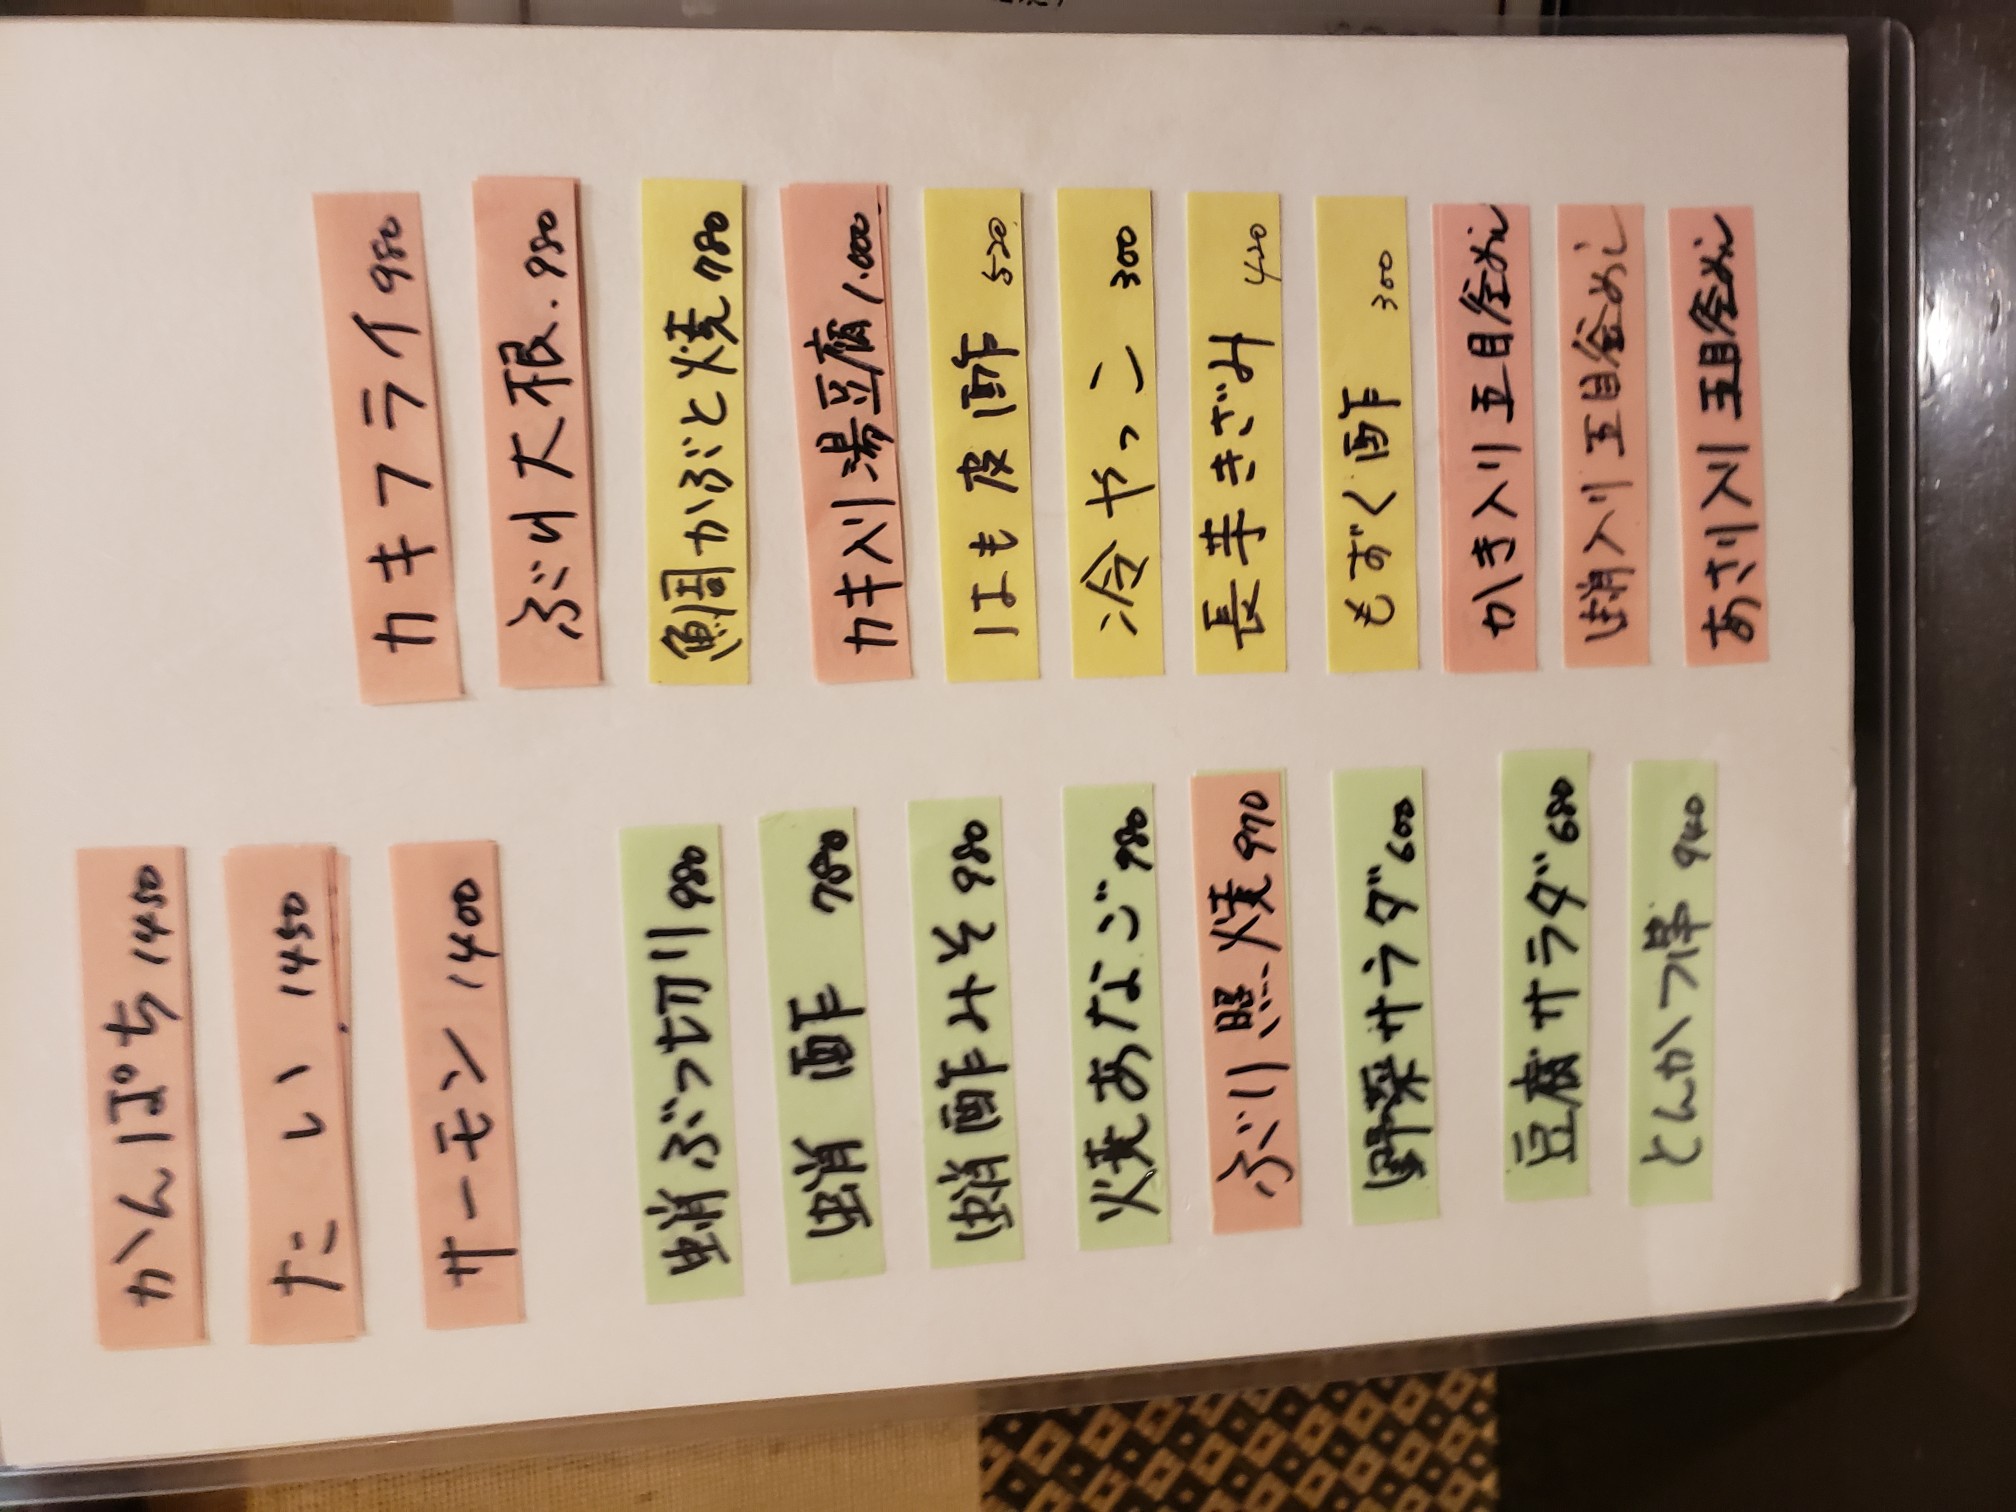 かんぱち 1450
たい 1450
サーモン 1400
蛸ぶつ切り 980
蛸酢 780
蛸酢みそ 980
焼あなご 980
ぶり照焼 970
野菜サラダ 600
豆腐サラダ 680
とんかつ 940
カキフライ 980
ぶり大根.980
鯛かぶと焼 780
カキ入り湯豆腐 1.000
はも皮酢 520
冷やっこ 300
長芋きざみ 420
もずく酢 300
かき入り五目釜めし
蛸入り五目釜めし
あさり入り五目釜めし